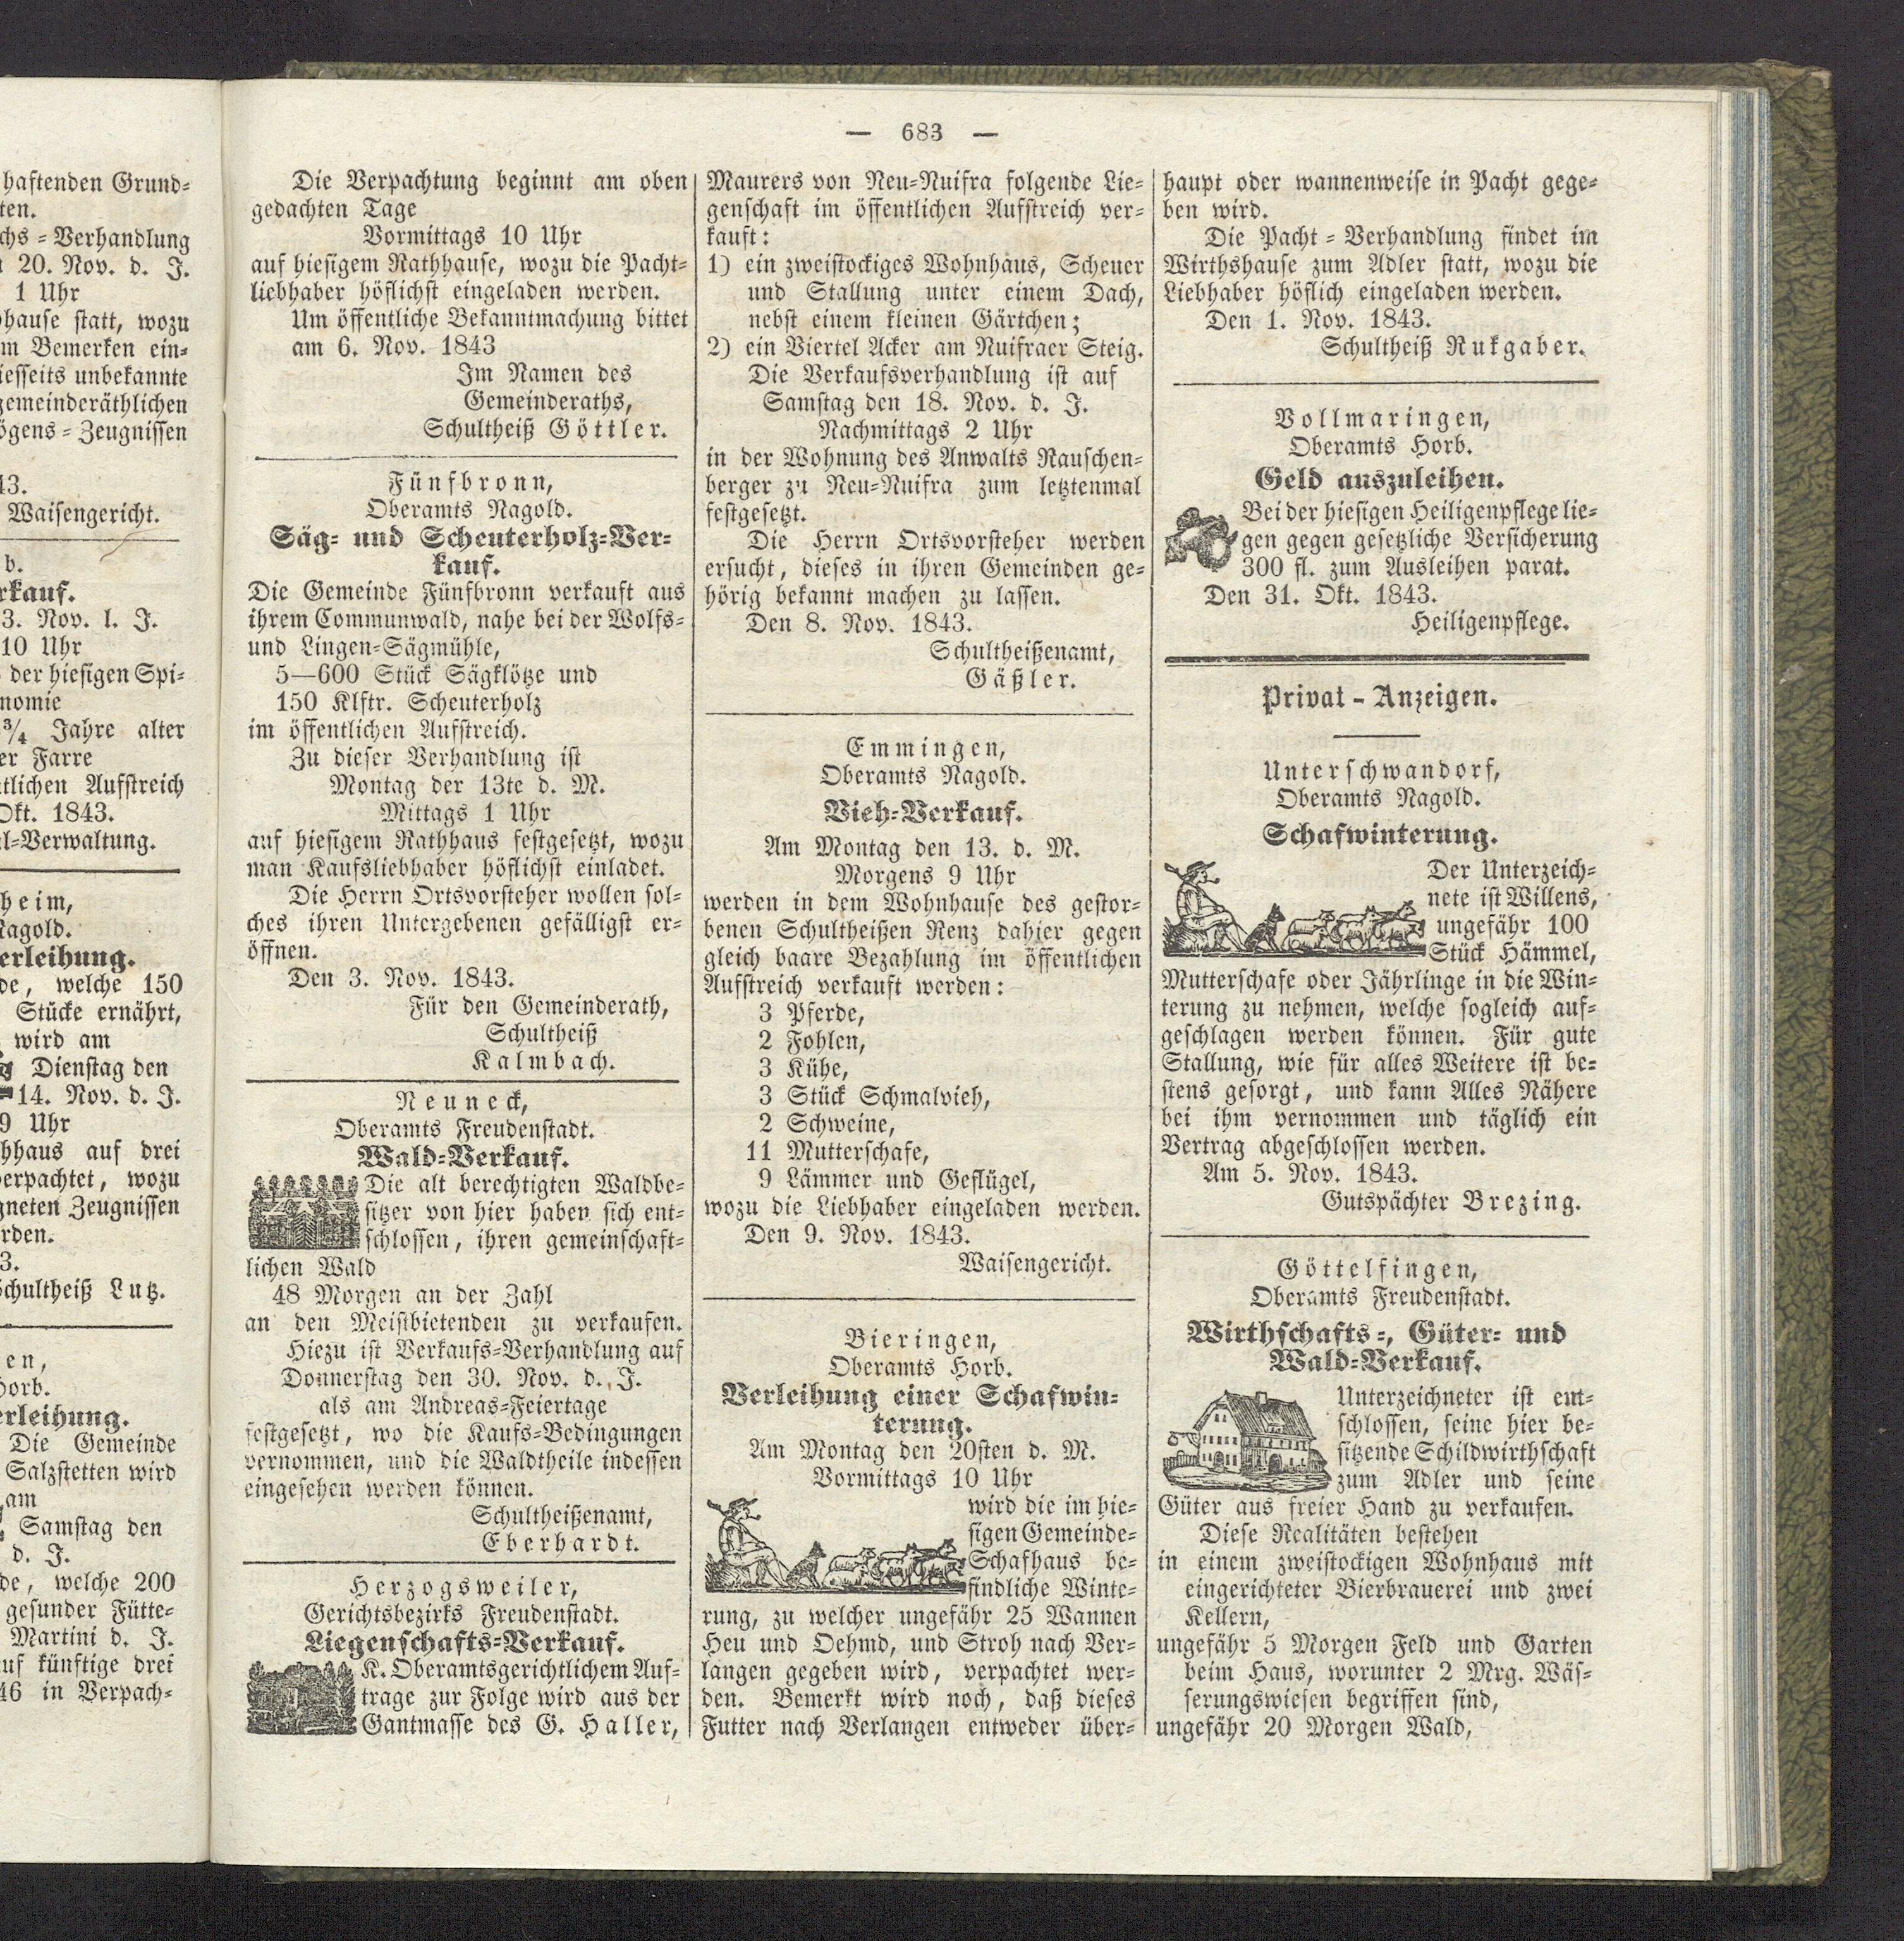 haftenden Grund-
ten.
chs-Verhandlung
20. Nov. d. J.
1 Uhr
hause statt, wozu
m Bemerken ein-
iesseits unbekannte
gemeinderäthlichen
ögens-Zeugnissen
43.
Waisengericht.
b.
rkauf.
3. Nov. l. J.
10 Uhr
der hiesigen Spi-
nomie
3/4 Jahre alter
er Farre
tlichen Aufstreich
Okt. 1843.
l-Verwaltung.
heim,
Nagold.
erleihung.
de, welche 150
Stücke ernährt,
wird am
Dienstag den
14. Nov. d. J.
9 Uhr
hhaus auf drei
verpachtet, wozu
gneten Zeugnissen
rden.
3.
Schultheiß Lutz.
en,
Horb.
erleihung.
Die Gemeinde
Salzstetten wird
am
Samstag den
d. J.
de, welche 200
gesunder Fütte-
Martini d. J.
uf künftige drei
46 in Verpach-
— 683 —
Die Verpachtung beginnt am oben
gedachten Tage
Vormittags 10 Uhr
auf hiesigem Rathhause, wozu die Pacht-
liebhaber höflichst eingeladen werden.
Um öffentliche Bekanntmachung bittet
am 6. Nov. 1843
Im Namen des
Gemeinderaths,
Schultheiß Göttler.
Fünfbronn,
Oberamts Nagold.
Säg- und Scheuterholz-Ver-
kauf.
Die Gemeinde Fünfbronn verkauft aus
ihrem Communwald, nahe bei der Wolfs-
und Lingen-Sägmühle,
5—600 Stück Sägklötze und
150 Klftr. Scheuterholz
im öffentlichen Aufstreich.
Zu dieser Verhandlung ist
Montag der 13te d. M.
Mittags 1 Uhr
auf hiesigem Rathhaus festgesetzt, wozu
man Kaufsliebhaber höflichst einladet.
Die Herrn Ortsvorsteher wollen sol-
ches ihren Untergebenen gefälligst er-
öffnen.
Den 3. Nov. 1843.
Für den Gemeinderath,
Schultheiß
Kalmbach.
Neuneck,
Oberamts Freudenstadt.
Wald-Verkauf.
Die alt berechtigten Waldbe-
sitzer von hier haben sich ent-
schlossen, ihren gemeinschaft-
lichen Wald
48 Morgen an der Zahl
an den Meistbietenden zu verkaufen.
Hiezu ist Verkaufs-Verhandlung auf
Donnerstag den 30. Nov. d. J.
als am Andreas-Feiertage
festgesetzt, wo die Kaufs-Bedingungen
vernommen, und die Waldtheile indessen
eingesehen werden können.
Schultheißenamt,
Eberhardt.
Herzogsweiler,
Gerichtsbezirks Freudenstadt.
Liegenschafts-Verkauf.
K. Oberamtsgerichtlichem Auf-
trage zur Folge wird aus der
Gantmasse des G. Haller,
Maurers von Neu-Nuifra folgende Lie-
genschaft im öffentlichen Aufstreich ver-
kauft:
1) ein zweistockiges Wohnhaus, Scheuer
und Stallung unter einem Dach,
nebst einem kleinen Gärtchen;
2) ein Viertel Acker am Nuifraer Steig.
Die Verkaufsverhandlung ist auf
Samstag den 18. Nov. d. J.
Nachmittags 2 Uhr
in der Wohnung des Anwalts Rauschen-
berger zu Neu-Nuifra zum letztenmal
festgesetzt.
Die Herrn Ortsvorsteher werden
ersucht, dieses in ihren Gemeinden ge-
hörig bekannt machen zu lassen.
Den 8. Nov. 1843.
Schultheißenamt,
Gäßler.
Emmingen,
Oberamts Nagold.
Vieh-Verkauf.
Am Montag den 13. d. M.
Morgens 9 Uhr
werden in dem Wohnhause des gestor-
benen Schultheißen Renz dahier gegen
gleich baare Bezahlung im öffentlichen
Aufstreich verkauft werden:
3 Pferde,
2 Fohlen,
3 Kühe,
3 Stück Schmalvieh,
2 Schweine,
11 Mutterschafe,
9 Lämmer und Geflügel,
wozu die Liebhaber eingeladen werden.
Den 9. Nov. 1843.
Waisengericht.
Bieringen,
Oberamts Horb.
Verleihung einer Schafwin-
terung.
Am Montag den 20sten d. M.
Vormittags 10 Uhr
wird die im hie-
sigen Gemeinde-
Schafhaus be-
findliche Winte-
rung, zu welcher ungefähr 25 Wannen
Heu und Oehmd, und Stroh nach Ver-
langen gegeben wird, verpachtet wer-
den. Bemerkt wird noch, daß dieses
Futter nach Verlangen entweder über-
haupt oder wannenweise in Pacht gege-
ben wird.
Die Pacht-Verhandlung findet im
Wirthshause zum Adler statt, wozu die
Liebhaber höflich eingeladen werden.
Den 1. Nov. 1843.
Schultheiß Rukgaber.
Vollmaringen,
Oberamts Horb.
Geld auszuleihen.
Bei der hiesigen Heiligenpflege lie-
gen gegen gesetzliche Versicherung
300 fl. zum Ausleihen parat.
Den 31. Okt. 1843.
Heiligenpflege.
Privat-Anzeigen.
Unterschwandorf,
Oberamts Nagold.
Schafwinterung.
Der Unterzeich-
nete ist Willens,
ungefähr 100
Stück Hämmel,
Mutterschafe oder Jährlinge in die Win-
terung zu nehmen, welche sogleich auf-
geschlagen werden können. Für gute
Stallung, wie für alles Weitere ist be-
stens gesorgt, und kann Alles Nähere
bei ihm vernommen und täglich ein
Vertrag abgeschlossen werden.
Am 5. Nov. 1843.
Gutspächter Brezing.
Göttelfingen,
Oberamts Freudenstadt.
Wirthschafts-, Güter- und
Wald-Verkauf.
Unterzeichneter ist ent-
schlossen, seine hier be-
sitzende Schildwirthschaft
zum Adler und seine
Güter aus freier Hand zu verkaufen.
Diese Realitäten bestehen
in einem zweistockigen Wohnhaus mit
eingerichteter Bierbrauerei und zwei
Kellern,
ungefähr 5 Morgen Feld und Garten
beim Haus, worunter 2 Mrg. Wäs-
serungswiesen begriffen sind,
ungefähr 20 Morgen Wald,